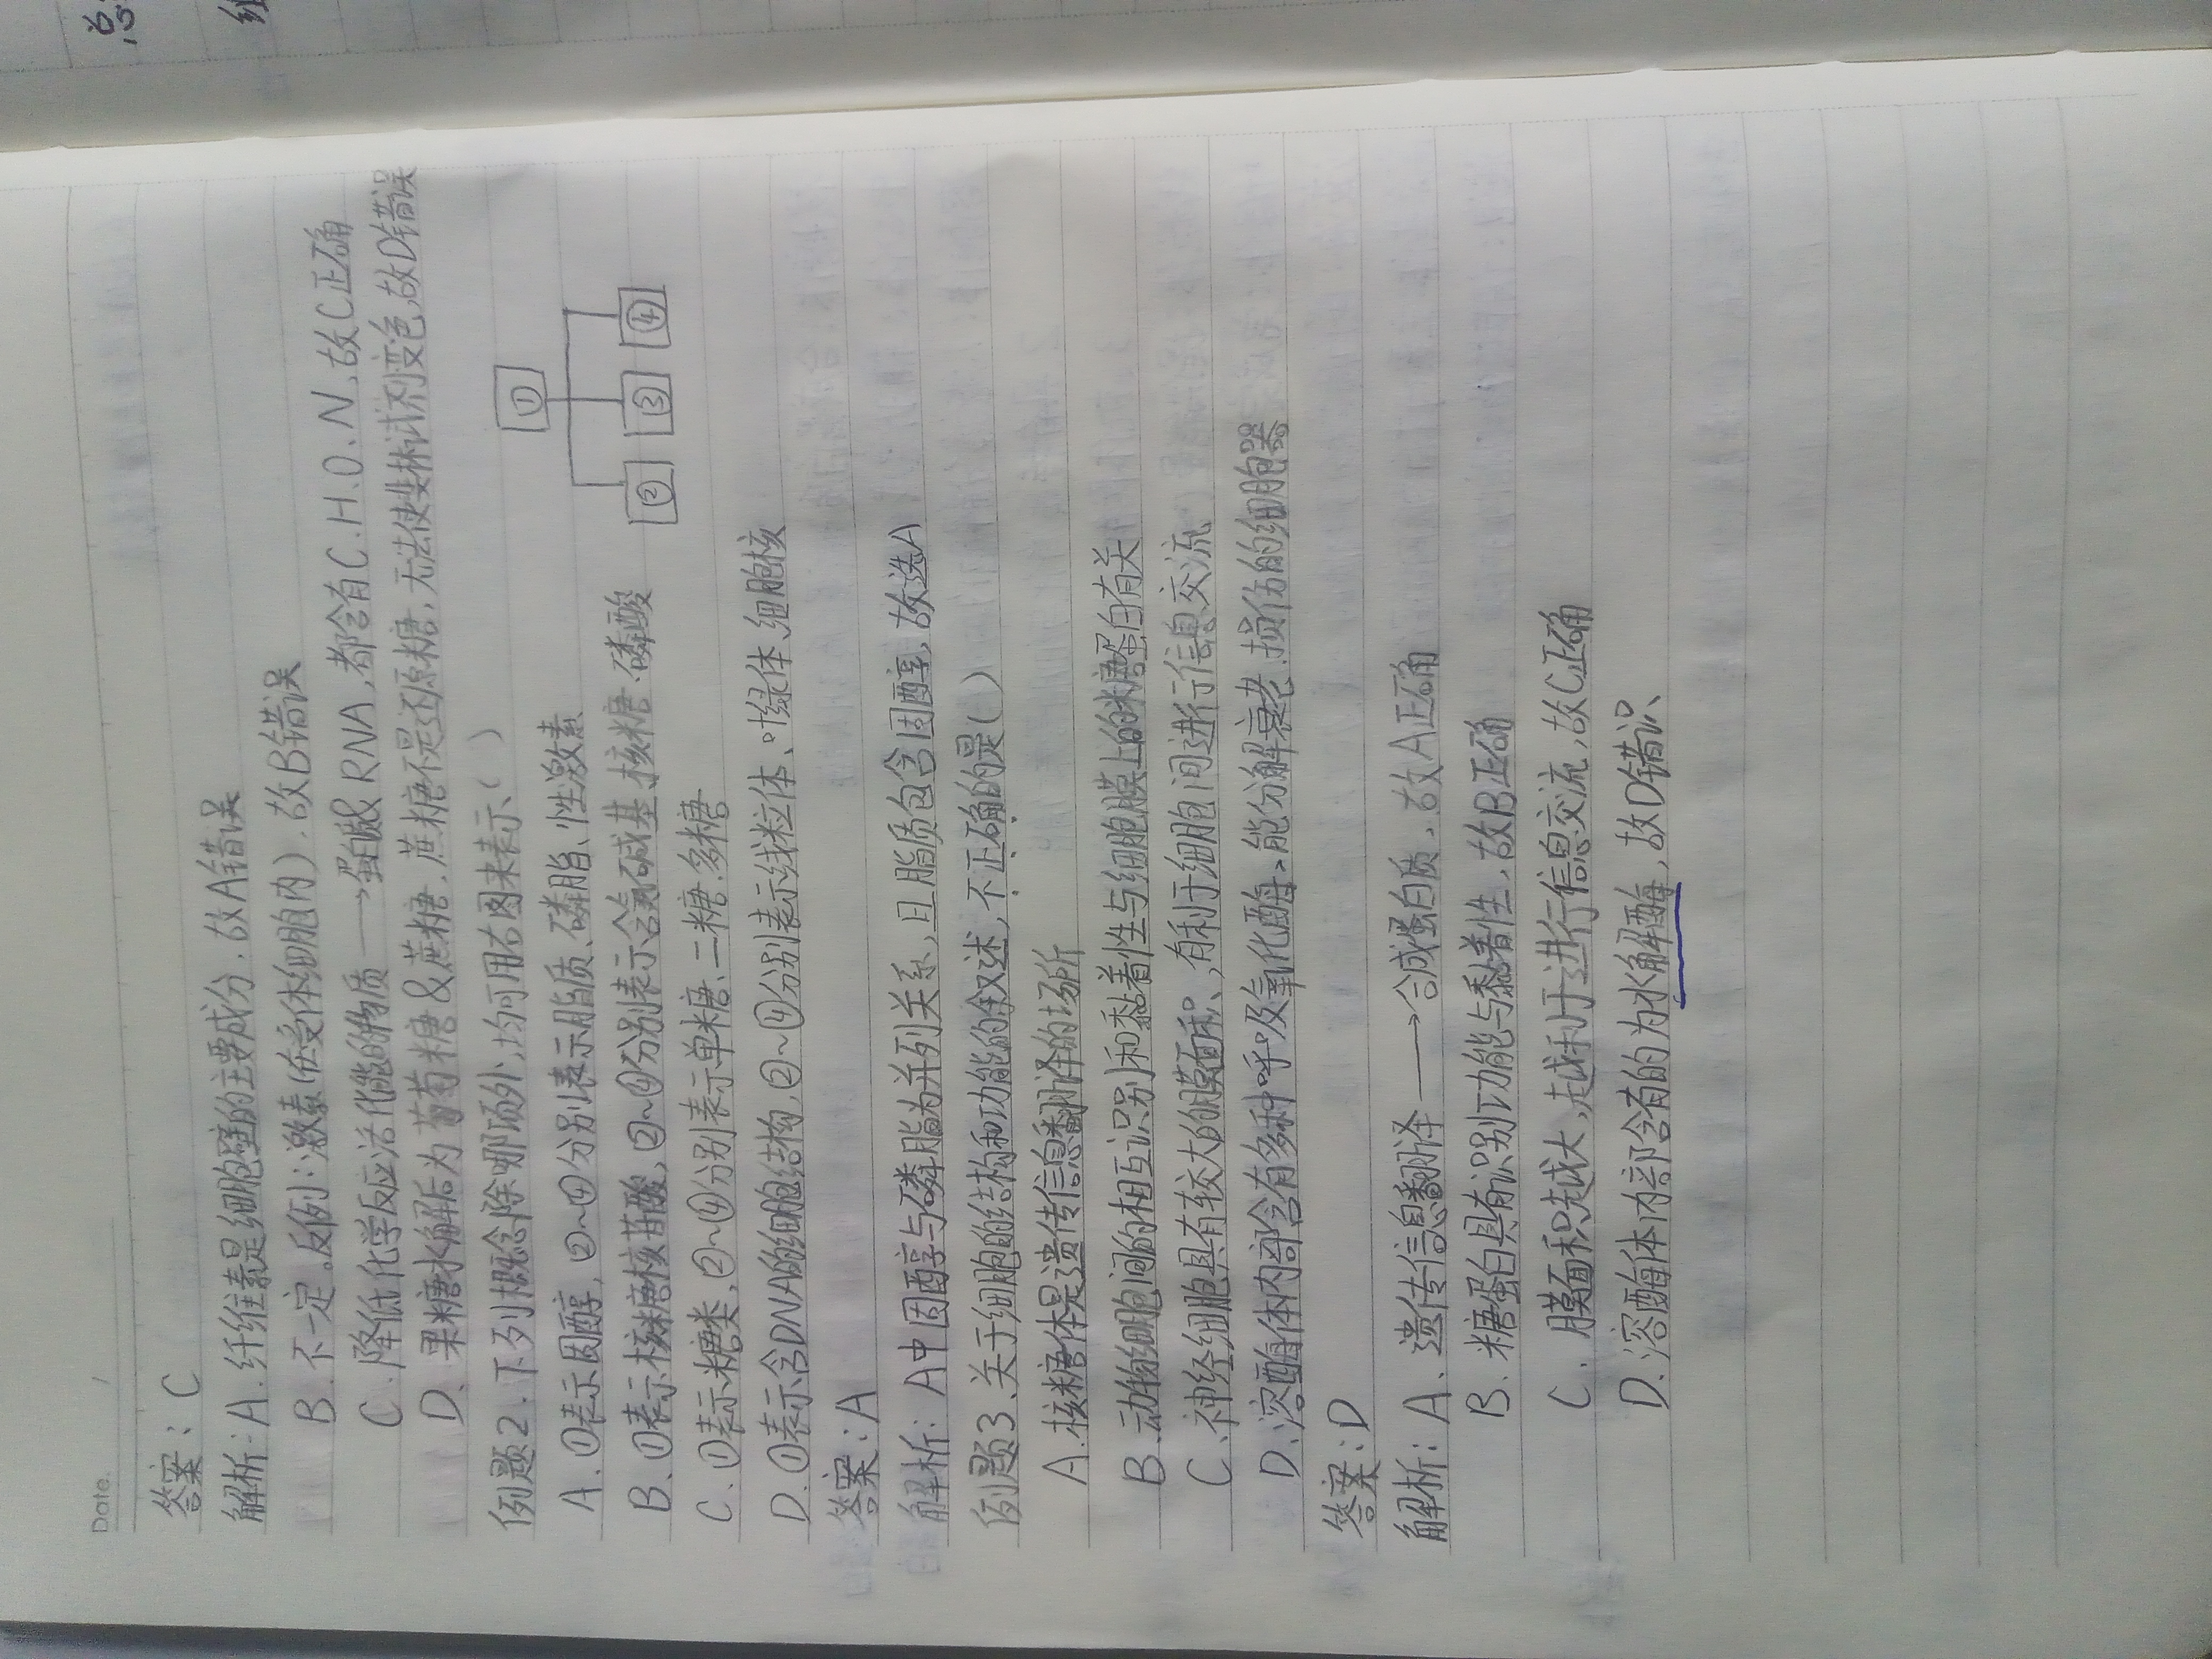 Date.
答案：C
解析：A.纤维素是细胞壁的主要成分，故A错误
B.不一定。反例：激素(在受体细胞内)，故B错误
C.降低化学反应活化能的物质→蛋白质&RNA，都含有C.H.O.N，故C正确
D.果糖水解后为葡萄糖&蔗糖，蔗糖不是还原糖，无法使斐林试剂变色，故D错误
例题2.下列概念除哪项外，均可用右图来表示( )
①
② ③ ④
A.①表示固醇，②~④分别表示脂质、磷脂、性激素
B.①表示核糖核苷酸，②~④分别表示含氮碱基.核糖.磷酸
C.①表示糖类，②~④分别表示单糖、二糖.多糖
D.①表示含DNA的细胞结构，②~④分别表示线粒体、叶绿体、细胞核
答案：A
解析：A中固醇与磷脂为并列关系，且脂质包含固醇，故选A
例题3、关于细胞的结构和功能的叙述，不正确的是( )
A.核糖体是遗传信息翻译的场所
B.动物细胞间的相互识别和黏着性与细胞膜上的糖蛋白有关
C.神经细胞具有较大的膜面积，有利于细胞间进行信息交流
D.溶酶体内部含有多种呼吸氧化酶，能分解衰老.损伤的细胞器
答案：D
解析：A.遗传信息翻译→合成蛋白质，故A正确
B.糖蛋白具有识别功能与黏着性，故B正确
C.膜面积越大，越利于进行信息交流，故C正确
D.溶酶体内部含有的为水解酶，故D错误